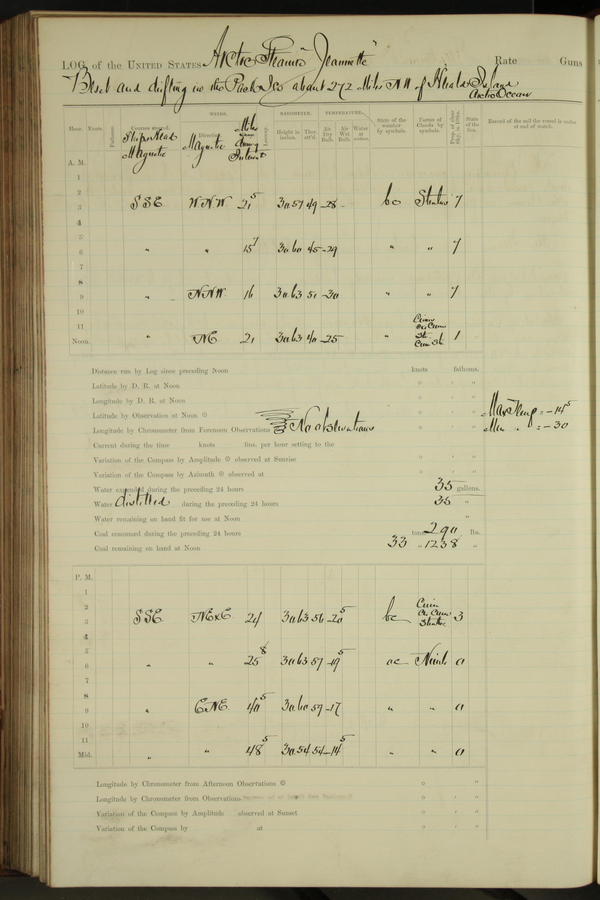 LOG of the UNITED STATES Arctic Steamer "Jeannette" Rate Guns
Beset and drifting in the Pack Ice about 272 Miles NW of Herald Island
Arctic Ocean
WINDS. BAROMETER. TEMPERATURE.
Hour. Knots. Courses steered. Ship's Head Magnetic Direction Magnetic Miles during Interval Leeway. Height in inches. Ther. att'd. Air Dry Bulb. Air Wet Bulb. Water at surface. State of the weather by symbols. Forms of Clouds by symbols. Prop. of clear Sky, in 10ths. State of the Sea. Record of the sail the vessel is under at end of watch.
A. M.
1
2
3 SSE WNW 21 5 30.57 49 -28 bc Stratus 7
4
5
6 " " 15 7 30.60 45 -29 " " 7
7
8
9 " NNW 16 30.63 51 -30 " " 7
10
11
Noon. " NE 21 30.63 40 -25 " Cirrus Cir Cum Str. Cum St. 1
Distance run by Log since preceding Noon knots fathoms.
Latitude by D. R. at Noon
Longitude by D. R. at Noon
Latitude by Observation at Noon
Max Temp = -14 5
Longitude by Chronometer from Forenoon Observations No observations
Min " = -30
Current during the time knots fms. per hour setting to the
Variation of the Compass by Amplitude observed at Sunrise
Variation of the Compass by Azimuth observed at
Water expended during the preceding 24 hours 35 gallons.
Water distilled during the preceding 24 hours 35 "
Water remaining on hand fit for use at Noon "
Coal consumed during the preceding 24 hours tons 290 lbs.
Coal remaining on hand at Noon 33 " 1238 "
P. M.
1
2
3 SSE NExE 24 30.63 56 -20 5 bc Cirri Cir Cum Stratus 3
4
5
6 " " 25 8 30.63 57 -19 5 oc Nimb 0
7
8
9 " ENE 40 5 30.60 59 -17 " " 0
10
11
Mid. " " 48 5 30.54 54 -14 5 " " 0
Longitude by Chronometer from Afternoon Observations
Longitude by Chronometer from Observations
Variation of the Compass by Amplitude observed at Sunset
Variation of the Compass by at